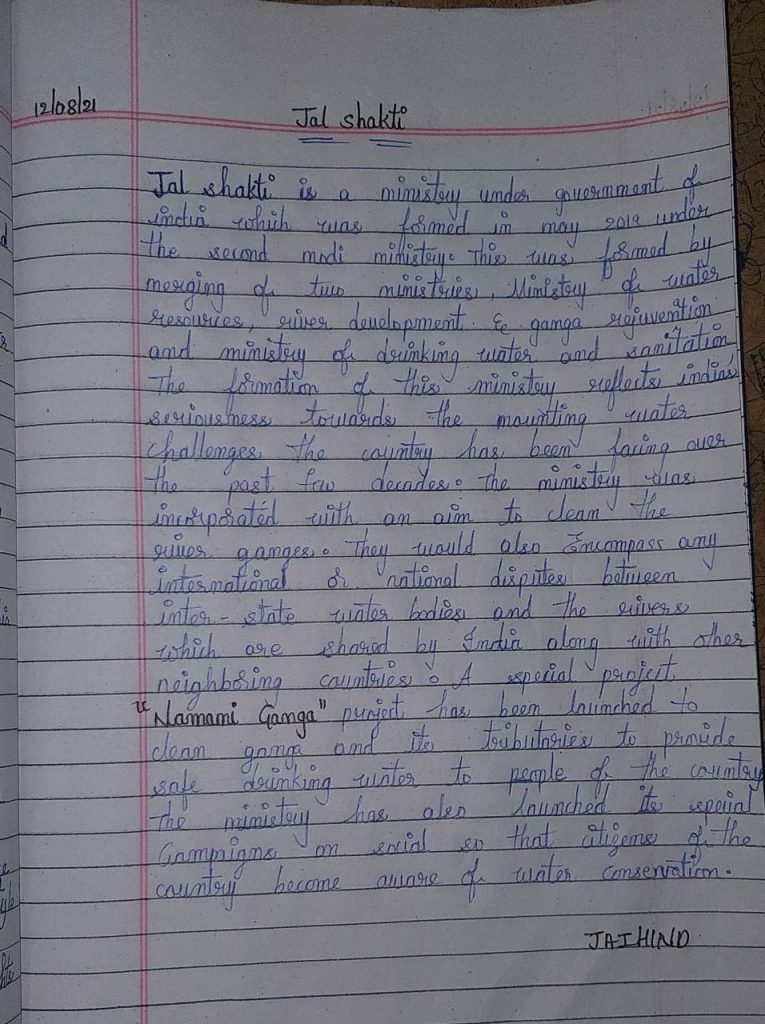 12/08/21
Jal shakti
Jal shakti is a ministry under government of
india which was formed in may 2019 under
the second modi ministry. This was formed by
merging of two ministries, Ministry of water
resources, river development & ganga rejuvention
and ministry of drinking water and sanitation
The formation of this ministry reflects indias'
seriousness towards the mounting water
challenges the country has been facing over
the past few decades. the ministry was
incorporated with an aim to clean the
river ganges. They would also Encompass any
international or national disputes between
inter-state water bodies and the rivers
which are shared by India along with other
neighboring countries. A special project
"Namami Ganga" project has been launched to
clean ganga and its tributaries to provide
safe drinking water to people of the country
the ministry has also launched its special
Campaigns on social so that citizens of the
country become aware of water conservation.
JAIHIND